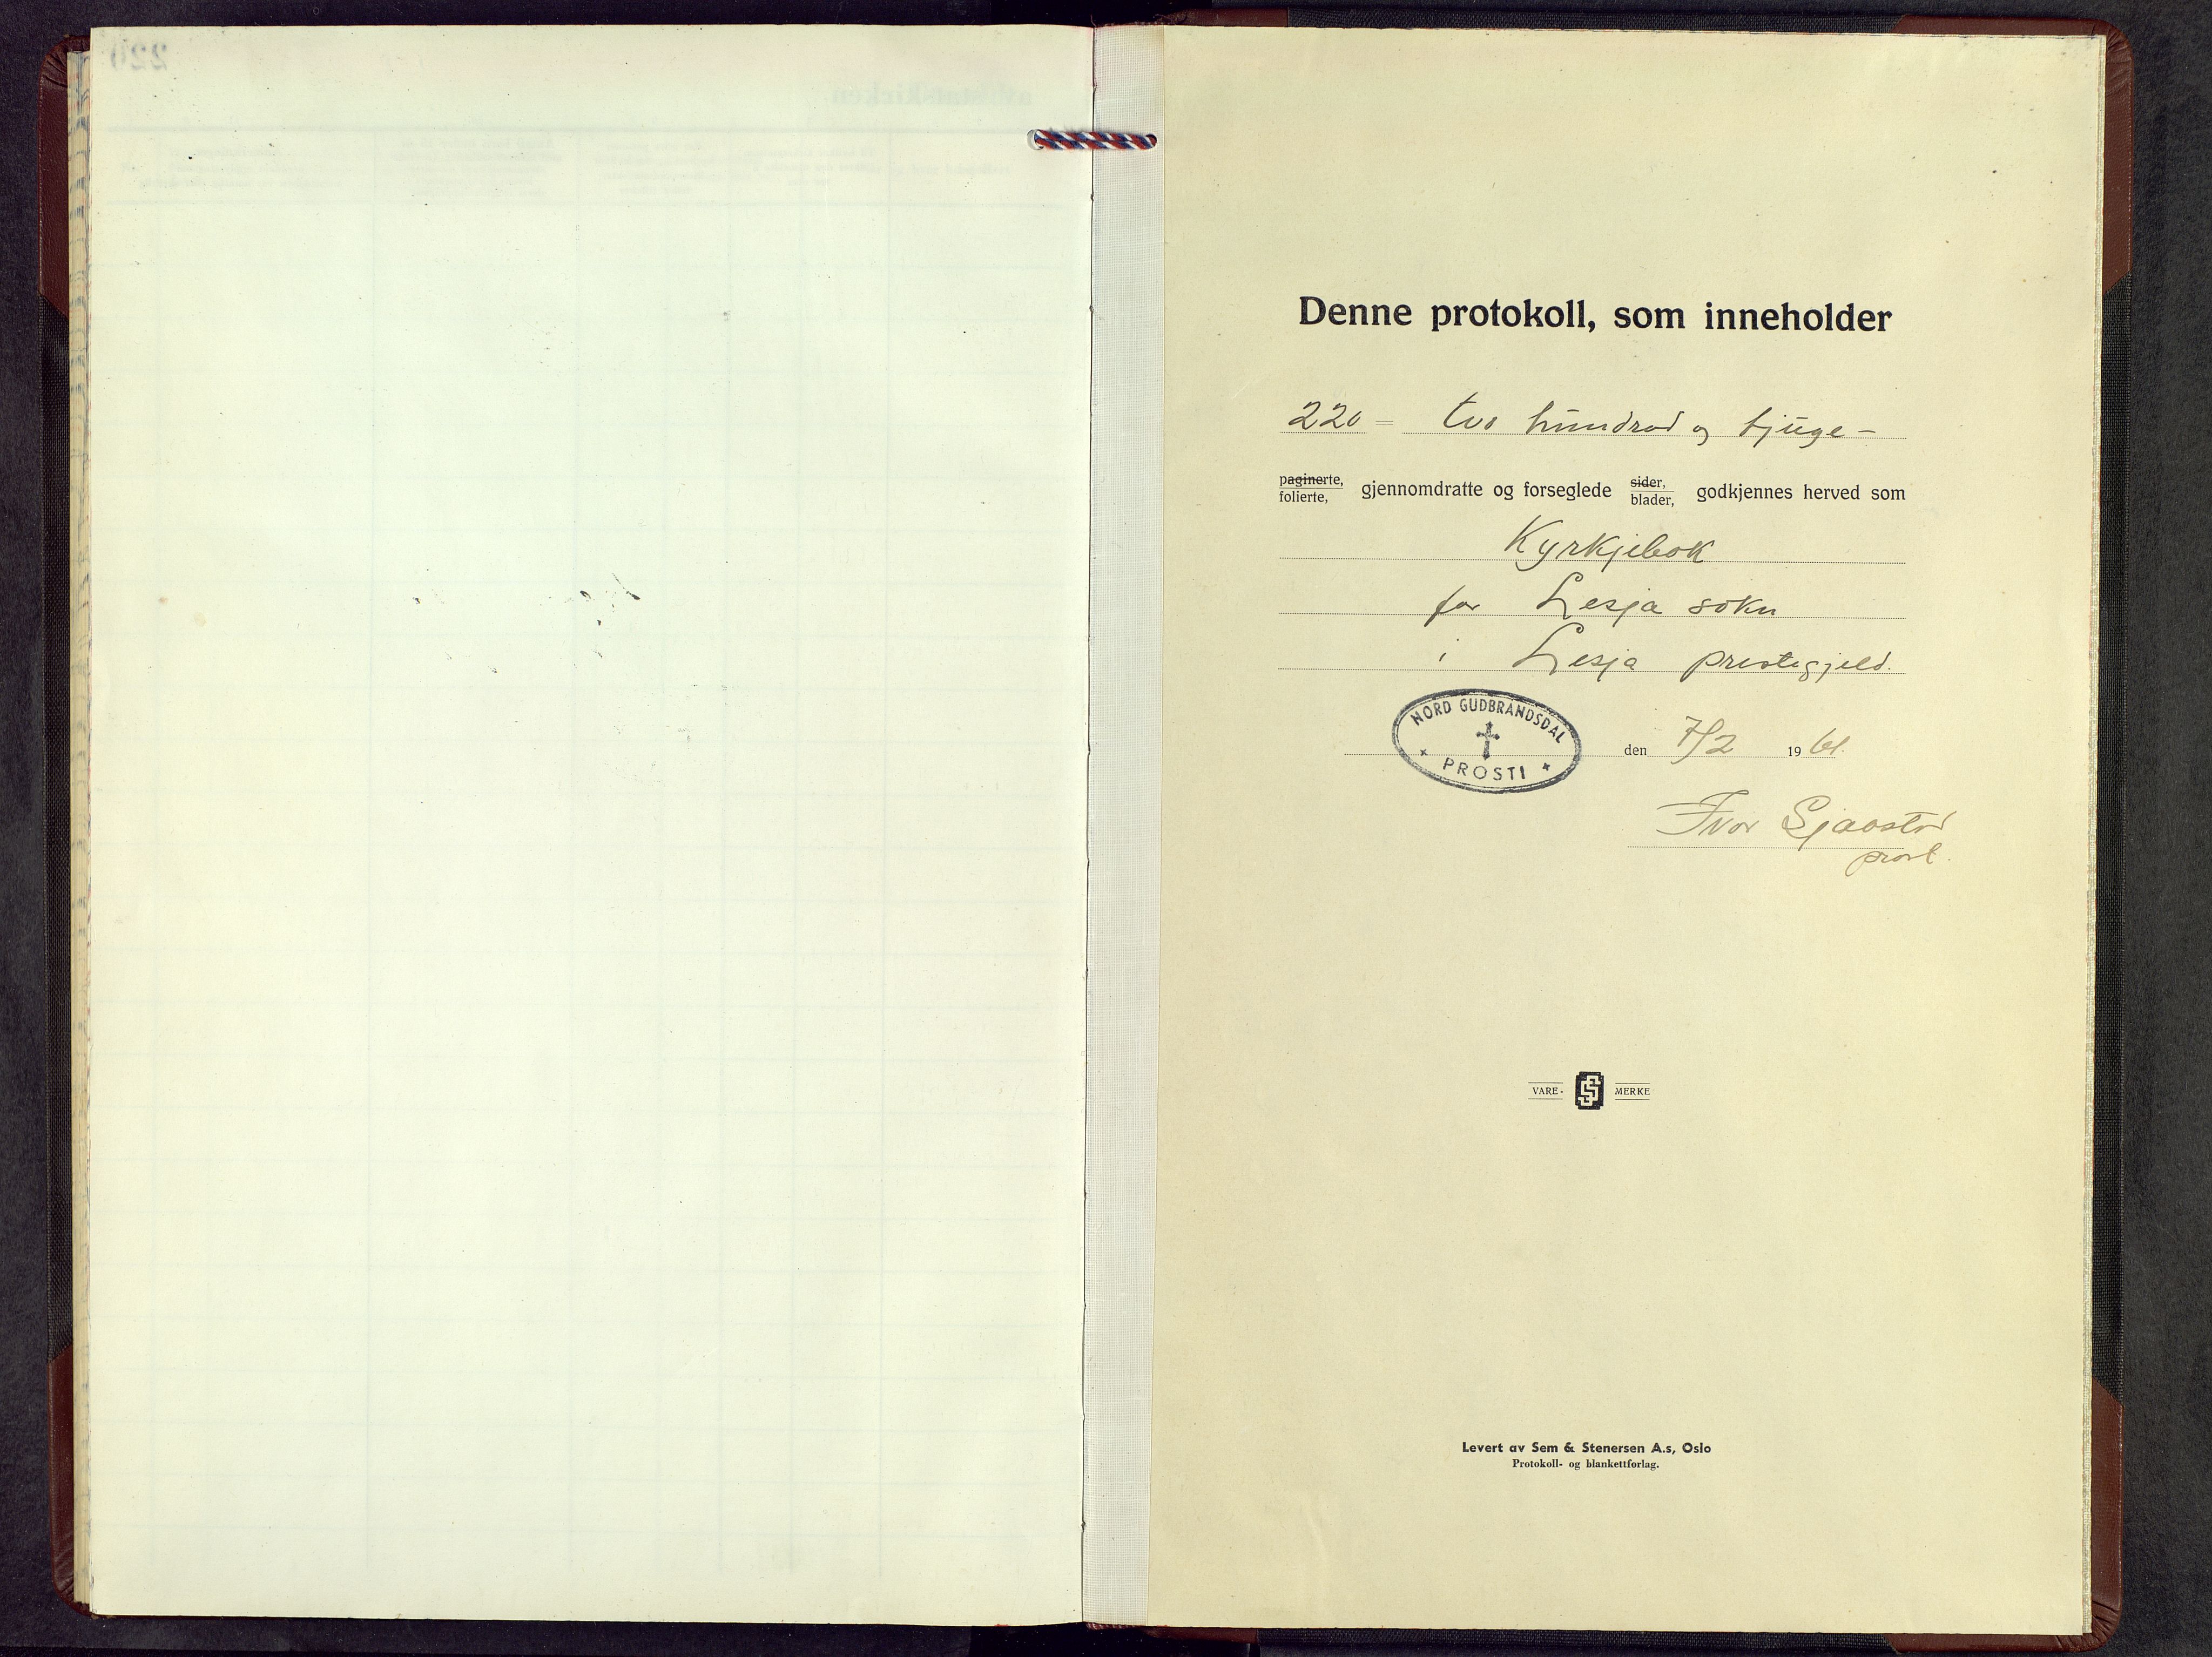 Denne protokoll, som inneholder
220 = tvo hundrad og tjuge -
paginerte,
folierte, gjennomdratte og forseglede sider,
blader, godkjennes herved som
Kyrkjebok
for Lesja sokn
i Lesja prestegjeld.
NORD GUDBRANDSDAL
PROSTI
den 7/2 1961.
Ivar
prost.
VARE- SS MERKE
Levert av Sem & Stenersen A.s, Oslo
Protokoll- og blankettforlag.
220
av statskirken